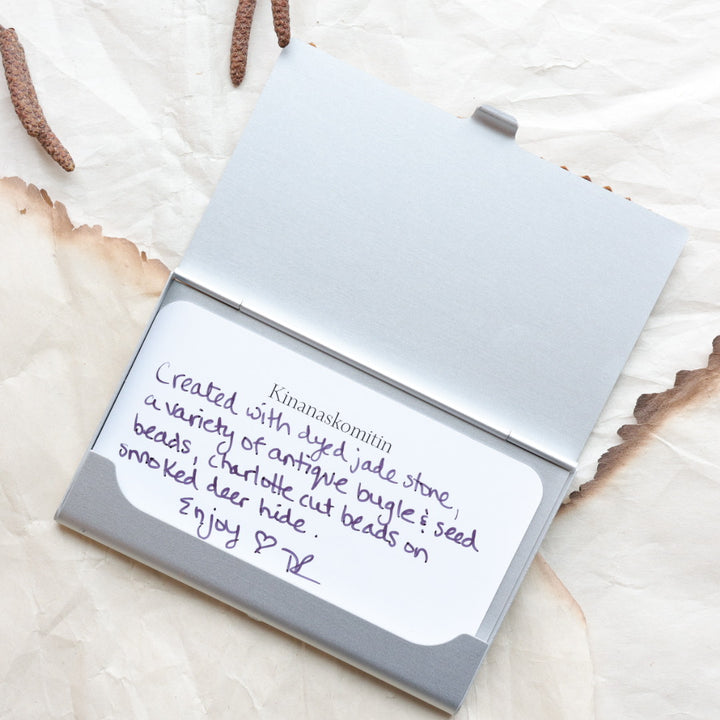 Kinanaskomitin
Created with dyed jade stone,
a variety of antique bugle & seed
beads, charlotte cut beads on
smoked deer hide.
Enjoy ♡ DL